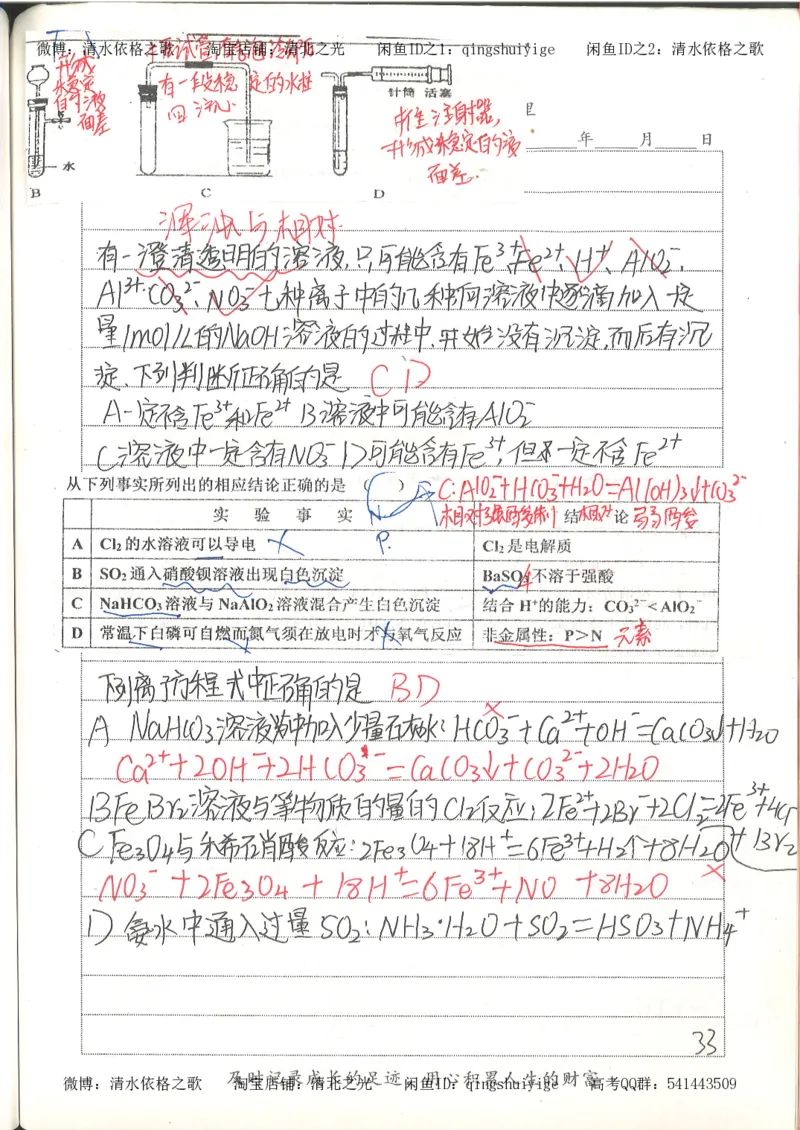 微博：清水依格之歌 淘宝店铺：清北之光 闲鱼ID之1：qingshuiyige 闲鱼ID之2：清水依格之歌
形成
稳定
的液
面差
有一段稳定的水柱
回流
针筒 活塞
形成稳定的液
面差.
年 月 日
水
B C D
浑浊与相对
有一澄清透明的溶液,只可能含有Fe³⁺、Fe²⁺、H⁺、AlO₂⁻、
Al³⁺、CO₃²⁻、NO₃⁻七种离子中的几种向溶液中逐滴加入一定
量1mol/L的NaOH溶液的过程中,开始没有沉淀,而后有沉
淀、下列判断正确的是 CD
A一定不含Fe³⁺和Fe²⁺ B溶液中可能含有AlO₂⁻
C溶液中一定含有NO₃⁻ D可能含有Fe³⁺,但不一定不含Fe²⁺
从下列事实所列出的相应结论正确的是 ( ) C:AlO₂⁻+HCO₃⁻+H₂O=Al(OH)₃↓+CO₃²⁻
实 验 事 实 结 论
A Cl₂的水溶液可以导电 Cl₂是电解质
B SO₂通入硝酸钡溶液出现白色沉淀 BaSO₄不溶于强酸
C NaHCO₃溶液与NaAlO₂溶液混合产生白色沉淀 结合H⁺的能力：CO₃²⁻＜AlO₂⁻
D 常温下白磷可自燃而氮气须在放电时才与氧气反应 非金属性：P＞N 元素
下列离子方程式中正确的是 BD
A NaHCO₃溶液中加入少量石灰水:HCO₃⁻+Ca²⁺+OH⁻=CaCO₃↓+H₂O
Ca²⁺+2OH⁻+2HCO₃⁻=CaCO₃↓+CO₃²⁻+2H₂O
B FeBr₂溶液与等物质的量的Cl₂反应:2Fe²⁺+2Br⁻+2Cl₂=2Fe³⁺+4Cl⁻
+Br₂
C Fe₃O₄与稀硝酸反应:2Fe₃O₄+18H⁺=6Fe³⁺+H₂↑+8H₂O
NO₃⁻+2Fe₃O₄+18H⁺=6Fe³⁺+NO+8H₂O
D 氨水中通入过量SO₂:NH₃·H₂O+SO₂=HSO₃⁻+NH₄⁺
33
及时记录成长的足迹 用心积累人生的财富
微博：清水依格之歌 淘宝店铺：清北之光 闲鱼ID：qingshuiyige 高考QQ群：541443509